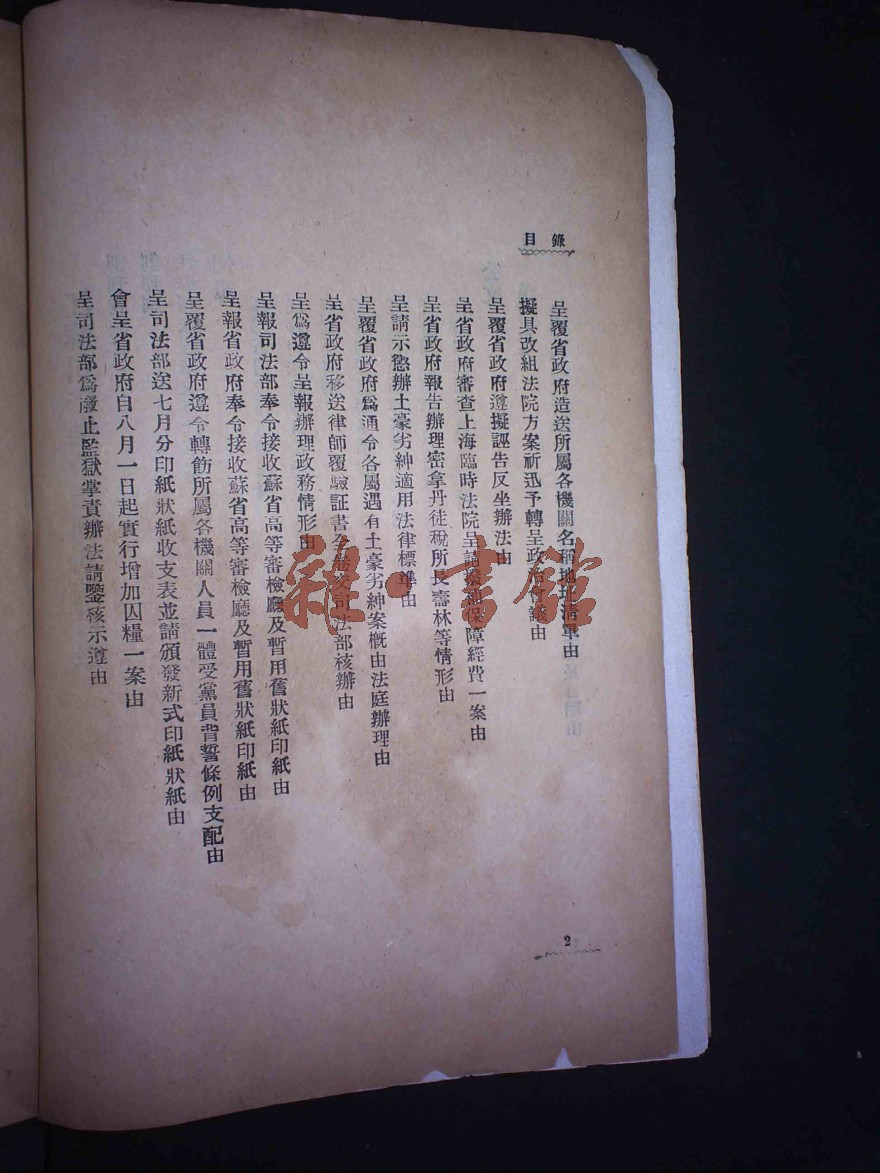 目錄
呈覆省政府造送所屬各機關名稱地址清單由
擬具改組法院方案祈迅予轉呈政治會議由
呈覆省政府遵擬誣告反坐辦法由
呈省政府審查上海臨時法院呈請
保障經費一案由
呈省政府報告辦理密拿丹徒稅所長壽林等情形由
呈請示懲辦土豪劣紳適用法律標準由
呈覆省政府爲通令各屬遇有土豪劣紳案概由法庭辦理由
呈省政府移送律師覆驗証書全卷交司法部核辦由
呈爲遵令呈報辦理政務情形由
呈報司法部奉令接收蘇省高等審檢廳及暫用舊狀紙印紙由
呈報省政府奉令接收蘇省高等審檢廳及暫用舊狀紙印紙由
呈覆省政府遵令轉飭所屬各機關人員一體受黨員背誓條例支配由
呈司法部送七月分印紙狀紙收支表並請頒發新式印紙狀紙由
會呈省政府自八月一日起實行增加囚糧一案由
呈司法部爲嚴止監獄掌責辦法請鑒核示遵由
2
雜·書館